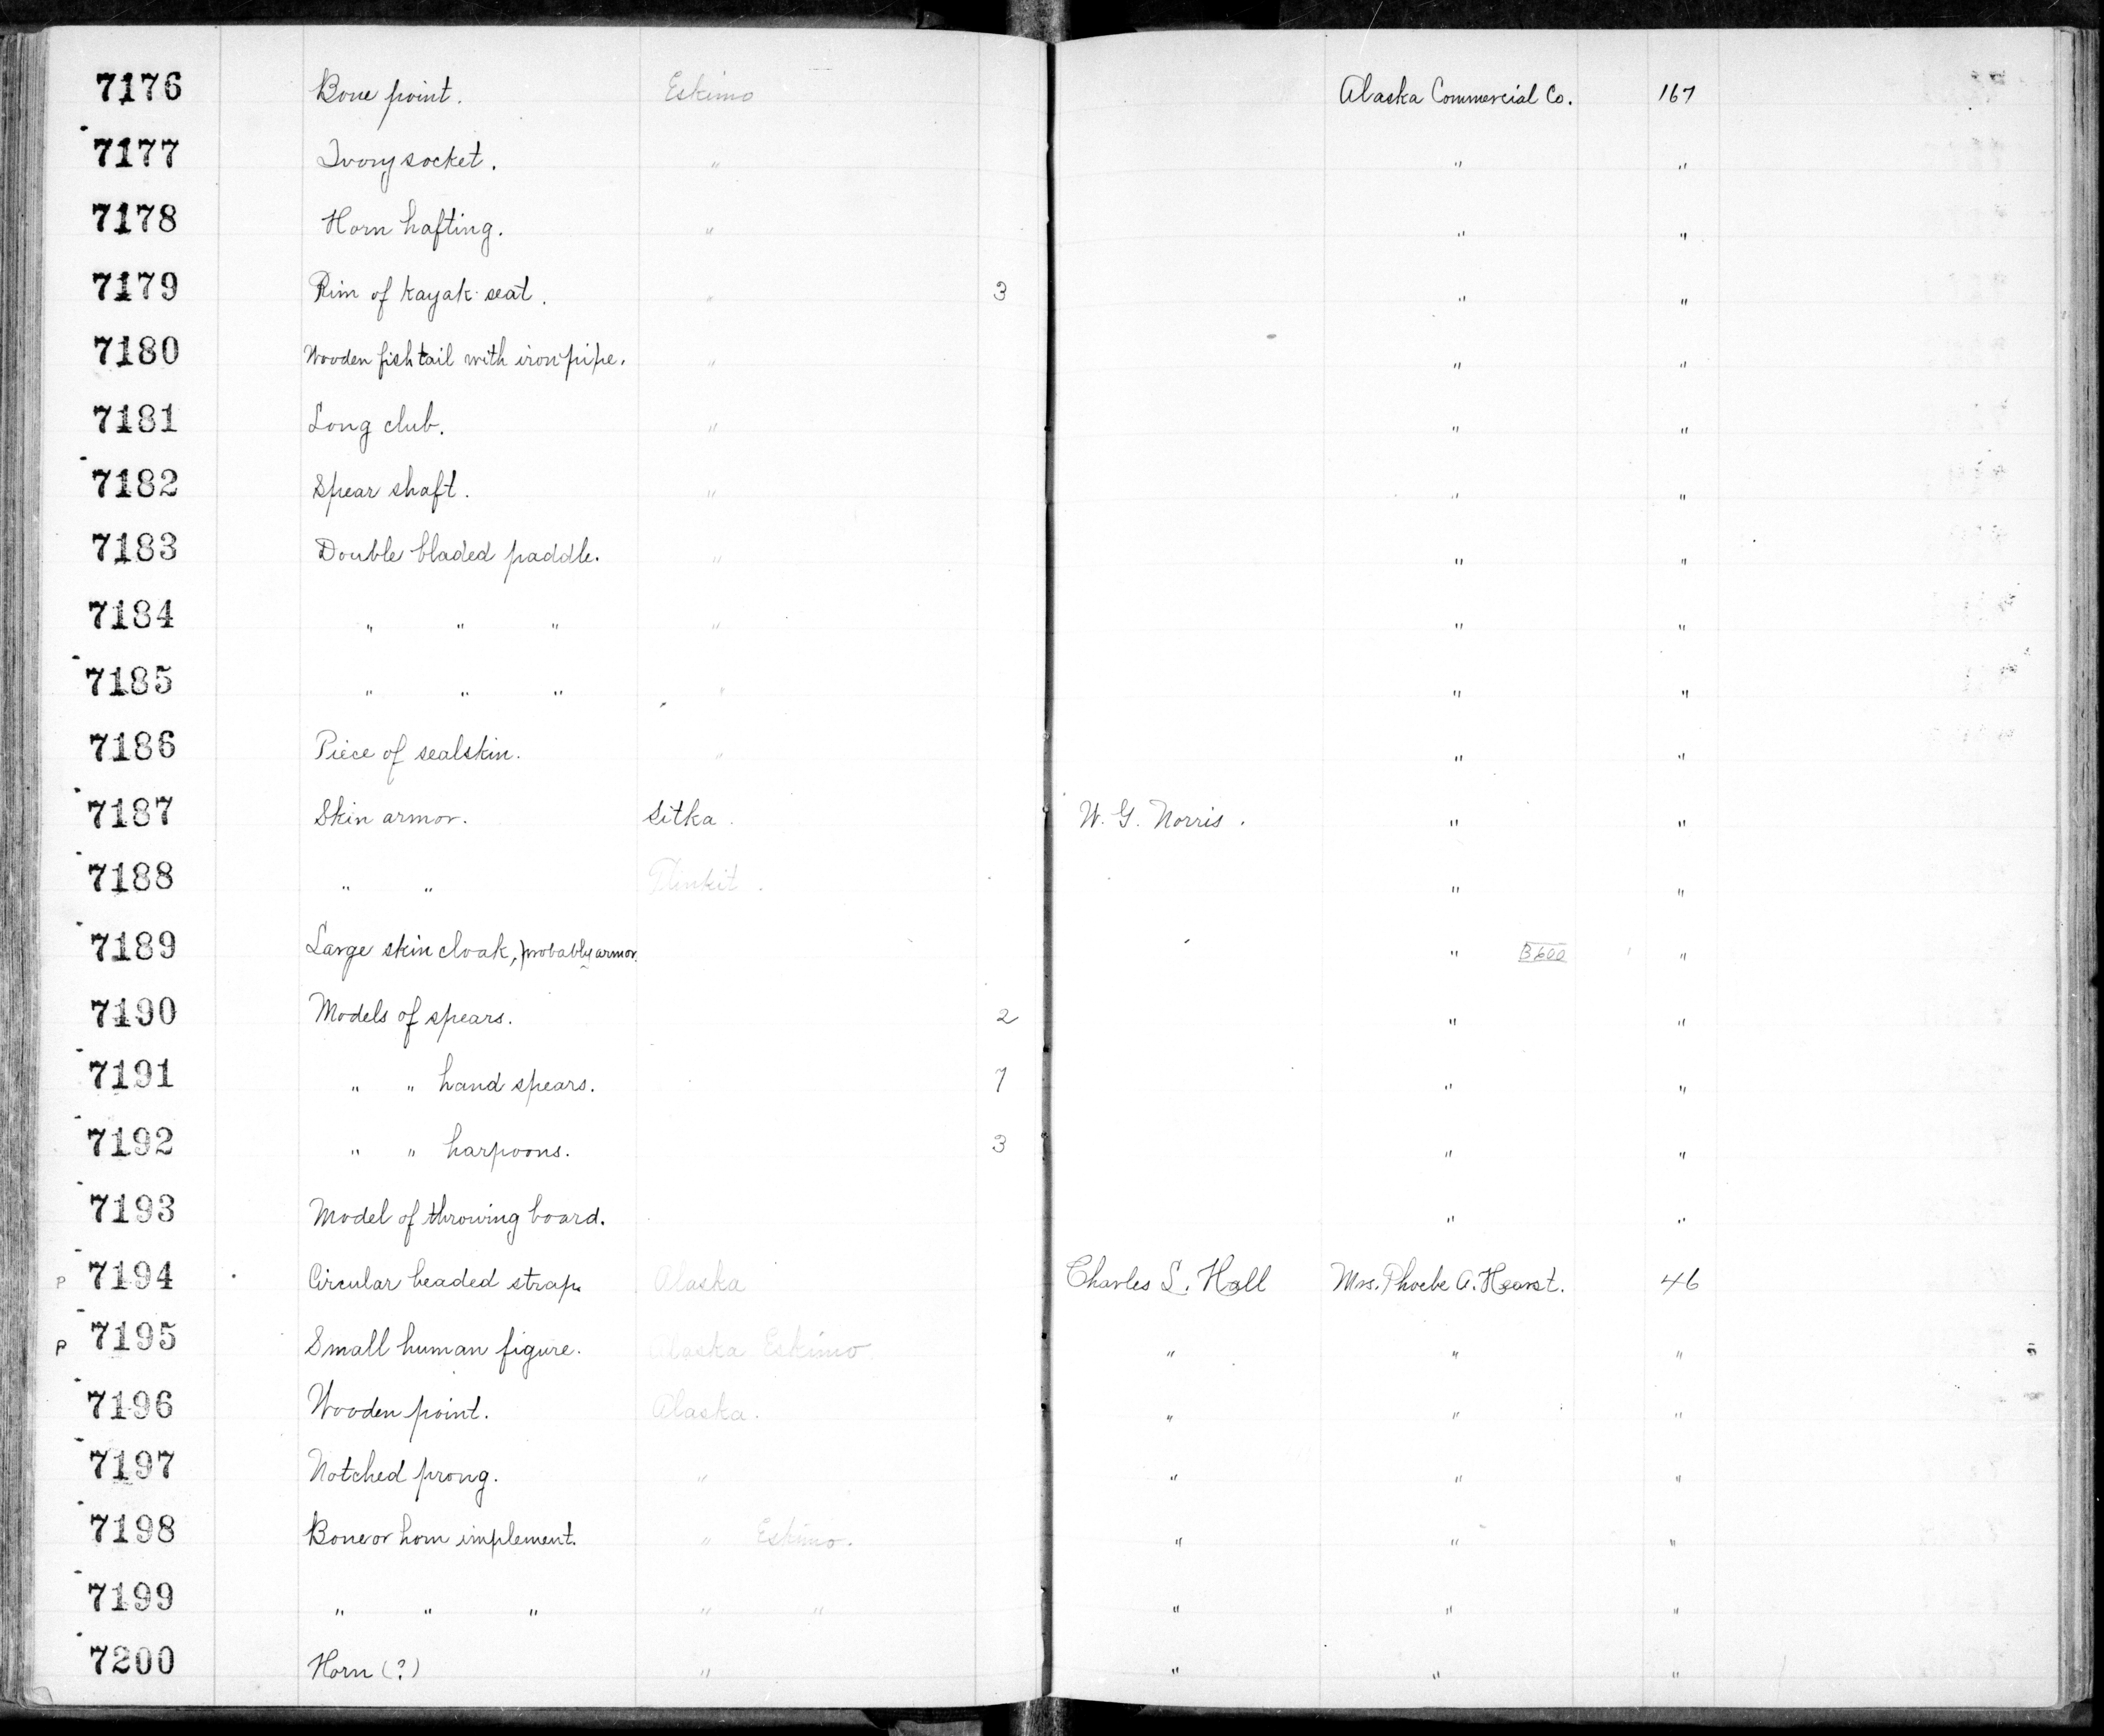 7176 Bone point. Eskimo Alaska Commercial Co. 167
7177 Ivory socket. " " "
7178 Horn hafting. " " "
7179 Rim of kayak seat. " 3 " "
7180 Wooden fish tail with iron pipe. " " "
7181 Long club. " " "
7182 Spear shaft. " " "
7183 Double bladed paddle. " " "
7184 " " " " " "
7185 " " " " " "
7186 Piece of sealskin. " " "
7187 Skin armor. Sitka. W. G. Norris. " "
7188 " " Tlinkit. " "
7189 Large skin cloak, probably armor. " B600 "
7190 Models of spears. 2 " "
7191 " " hand spears. 7 " "
7192 " " harpoons. 3 " "
7193 Model of throwing board. " "
P 7194 Circular beaded strap. Alaska Charles L. Hall Mrs. Phoebe A. Hearst. 46
P 7195 Small human figure. Alaska Eskimo " " "
7196 Wooden point. Alaska. " " "
7197 Notched prong. " " " "
7198 Bone or horn implement. " Eskimo. " " "
7199 " " " " " " " "
7200 Horn (?) " " " "